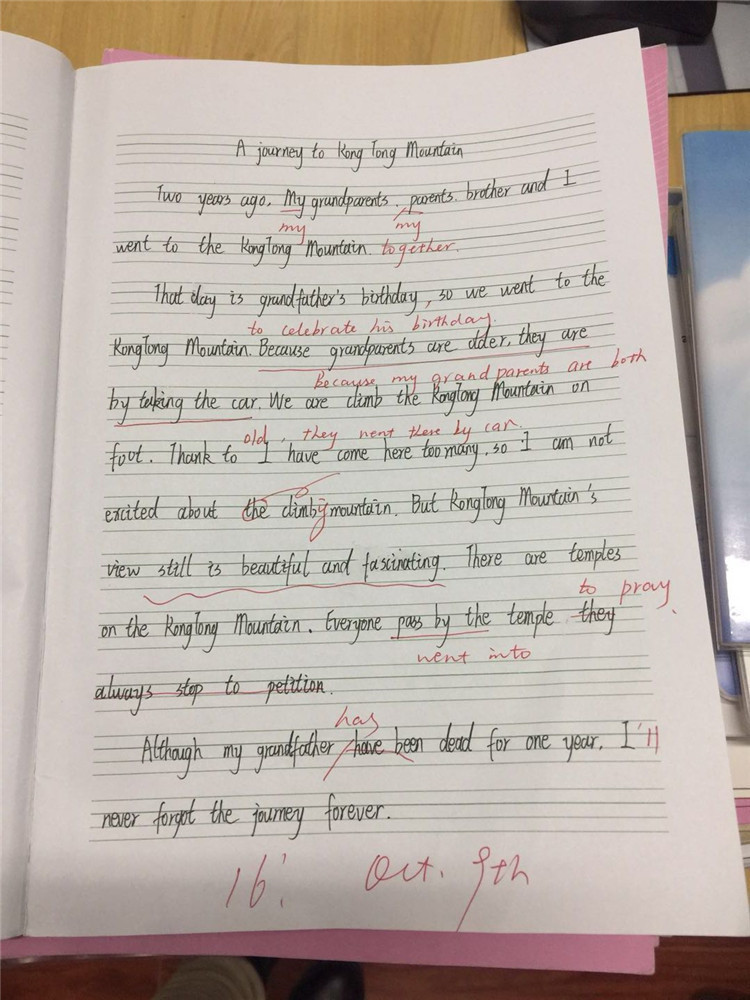 A journey to Kong Tong Mountain
Two years ago. My grandparents. parents. brother and I
my my
went to the KongTong Mountain. together.
That day is grandfather's birthday, so we went to the
to celebrate his birthday.
KongTong Mountain. Because grandparents are older, they are
Because my grandparents are both
by taking the car. We are climb the KongTong Mountain on
old, they went there by car.
foot. Thank to I have come here too many, so I am not
excited about the climby mountain. But KongTong Mountain's
view still is beautiful and fascinating. There are temples
to pray.
on the KongTong Mountain. Everyone pass by the temple they
went into
always stop to petition.
has
Although my grandfather have been dead for one year, I'll
never forgot the journey forever.
16! Oct. 9th